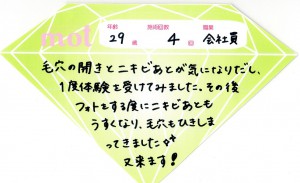 mot
年齢 29 歳 施術回数 4 回 職業 会社員
毛穴の開きとニキビあとが気になりだし、
1度体験を受けてみました。その後
フォトをする度にニキビあとも
うすくなり、毛穴もひきしま
ってきました
又来ます!